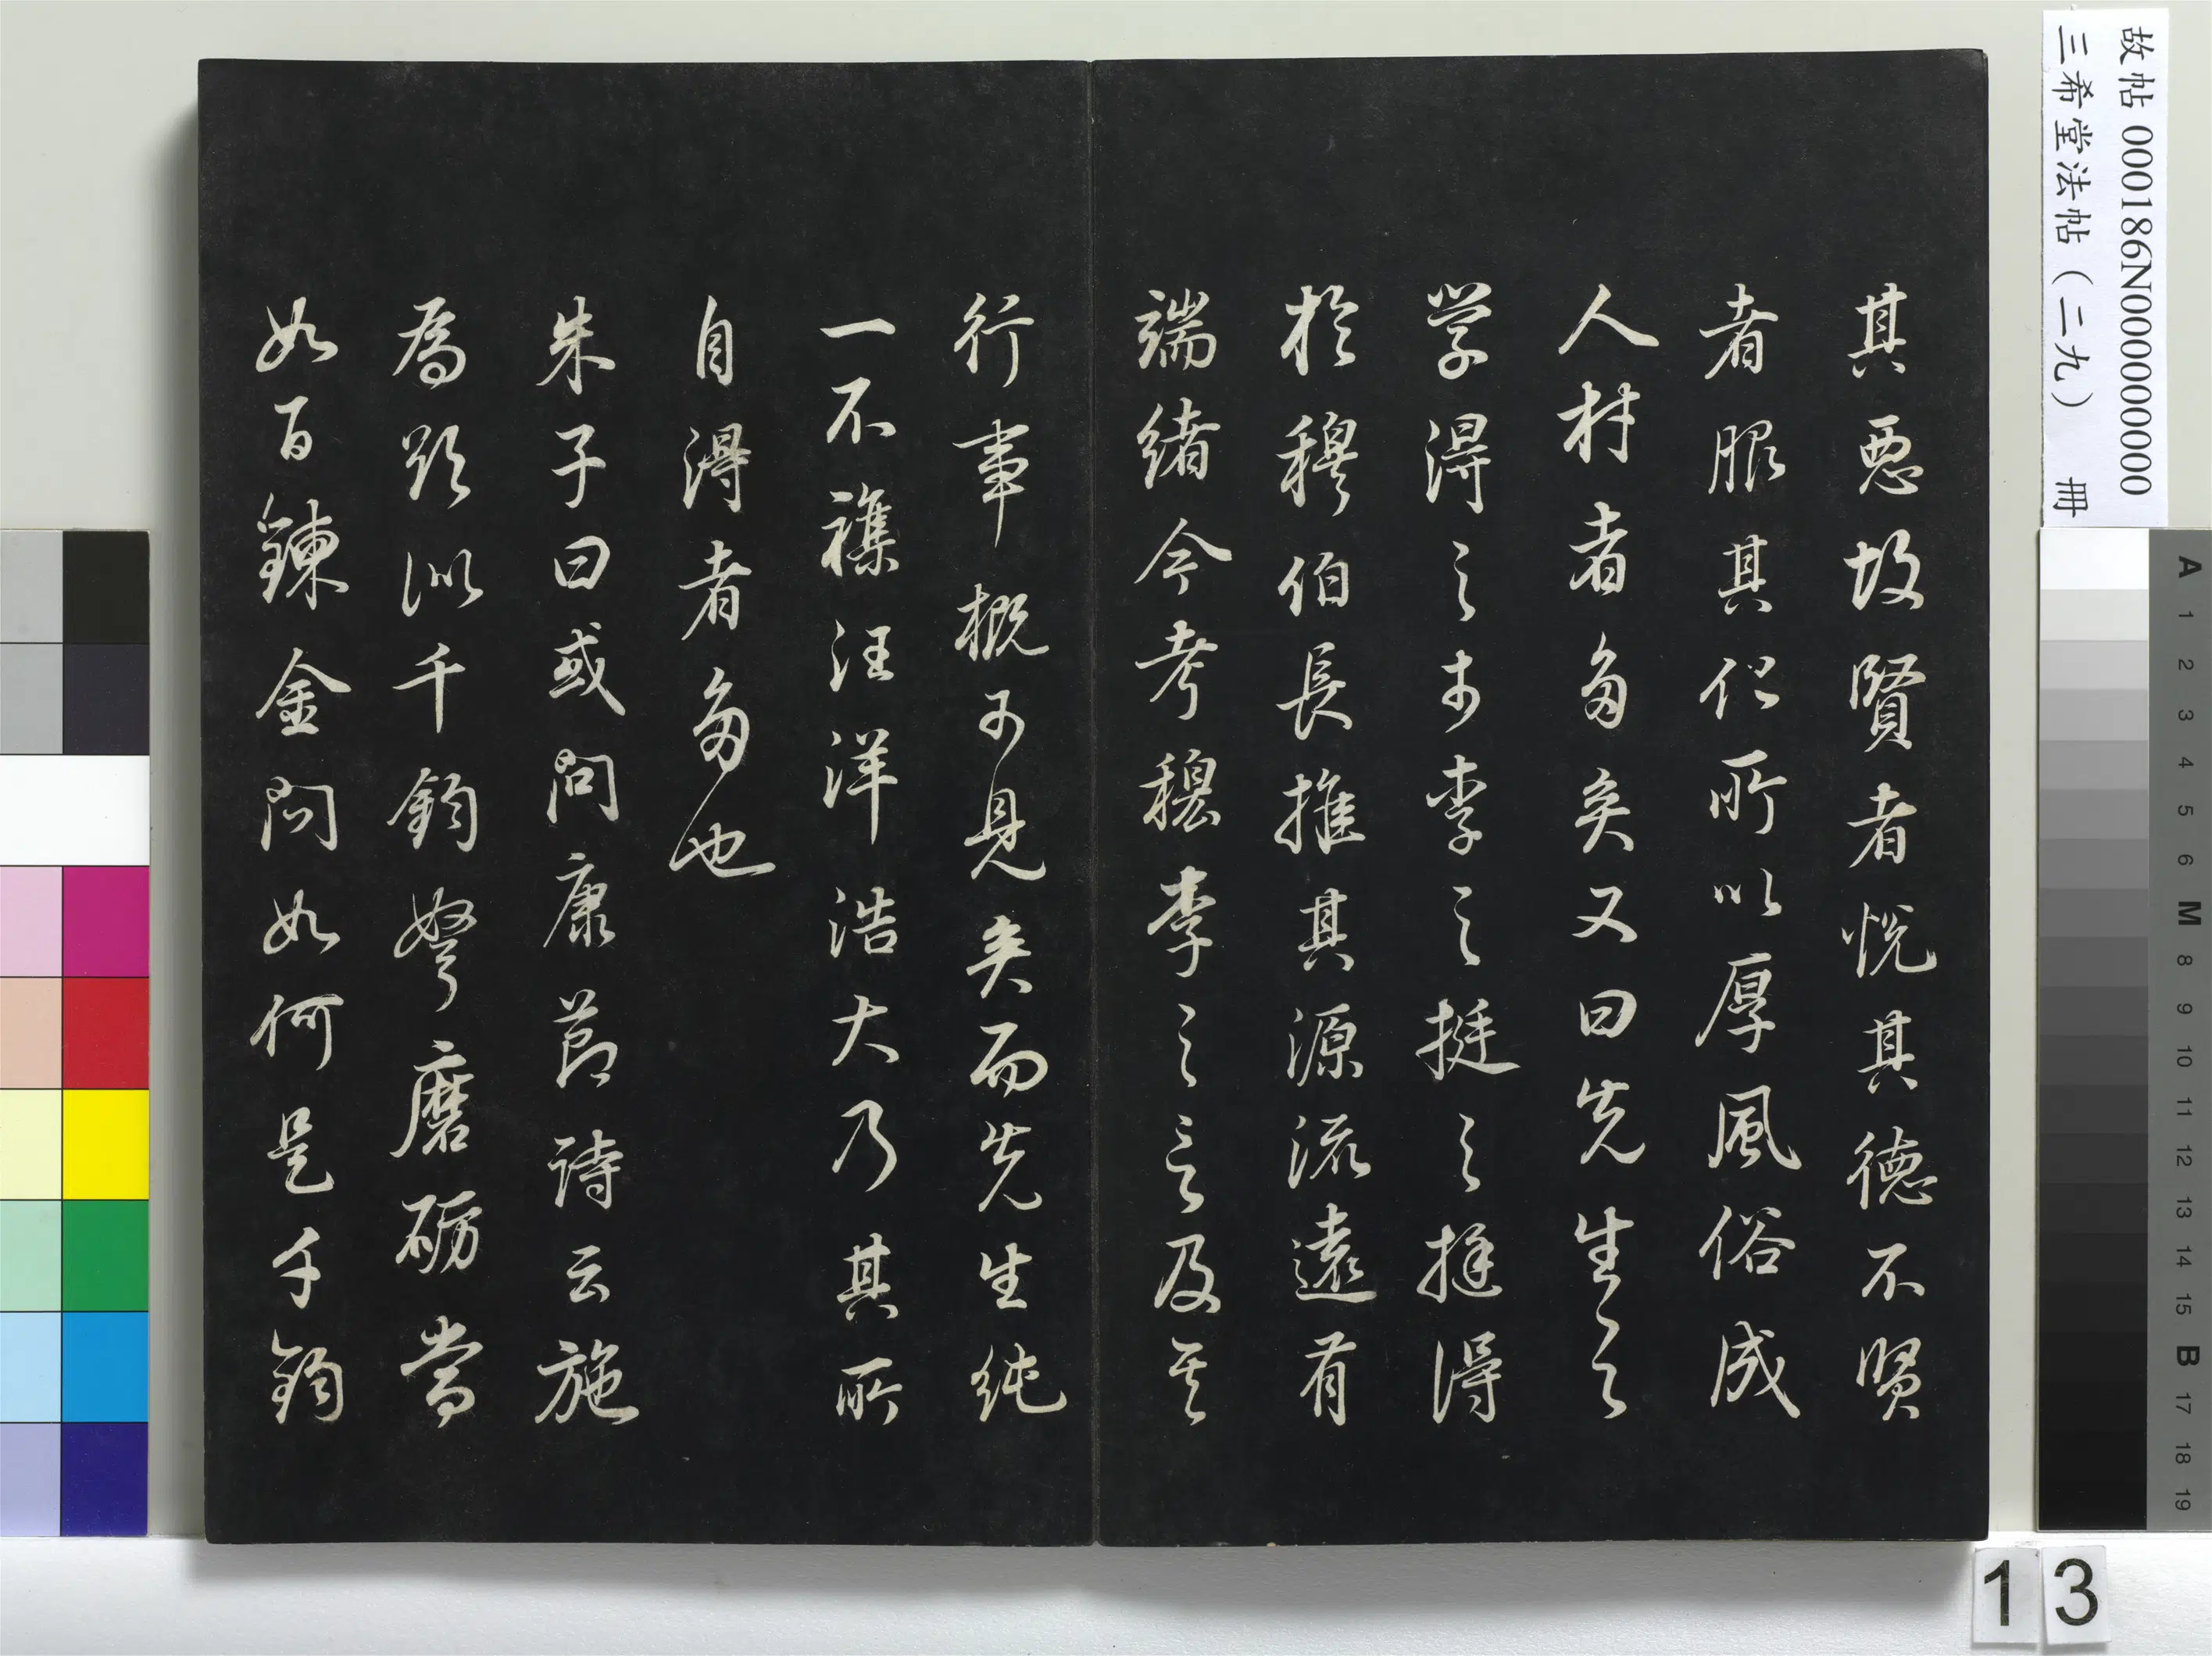 其惡故賢者悅其德不賢
者服其化所以厚風俗成
人材者多矣又曰先生之
学得之於李之挺之挺得
於穆伯長推其源流遠有
端緒今考穆李之言及其
行事概可見矣而先生純
一不襍汪洋浩大乃其所
自得者多也
朱子曰或問康莭詩云施
為欲似千鈞弩磨礪當
如百鍊金問如何是千鈞
故帖 000186N000000000
三希堂法帖（二九） 冊
A 1 2 3 4 5 6 M 8 9 10 11 12 13 14 15 B 17 18 19
13